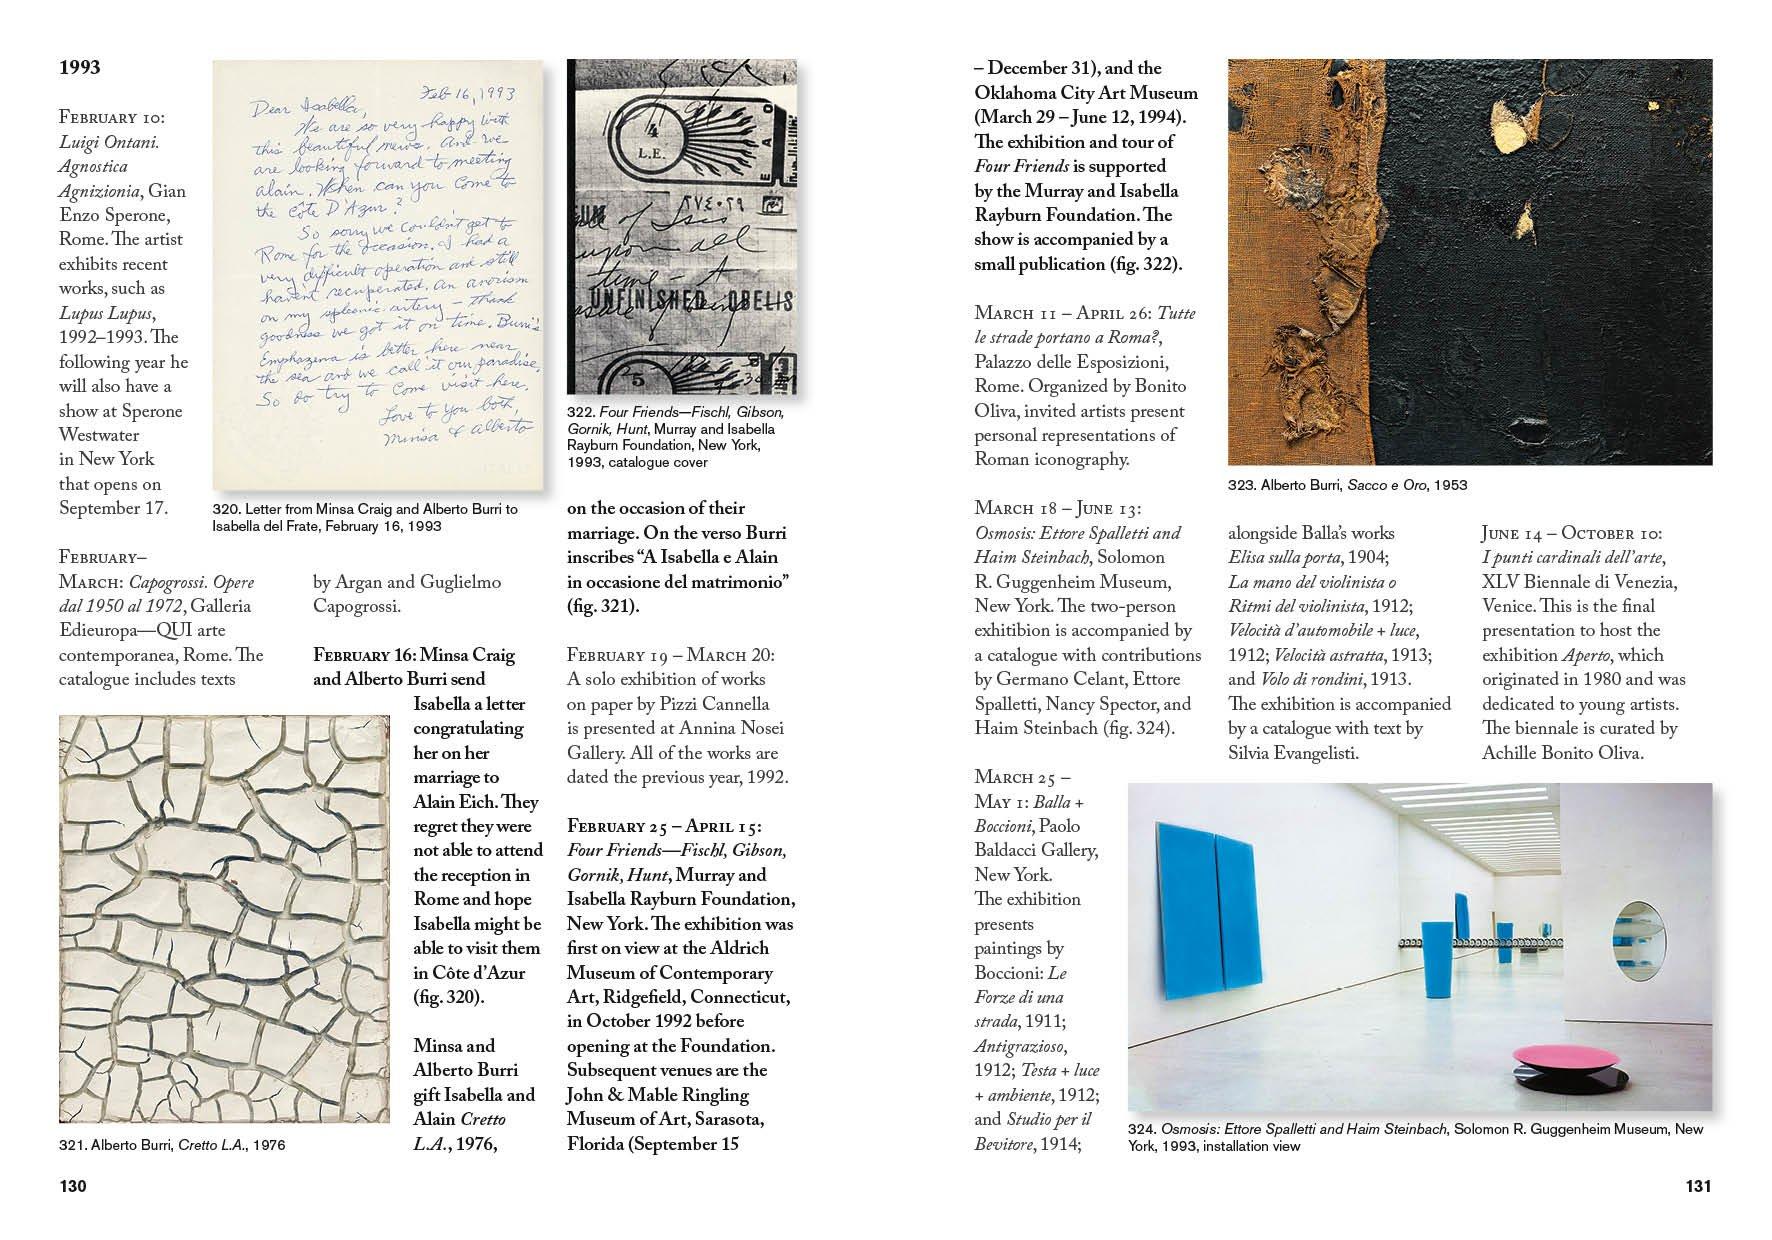 1993
FEBRUARY 10:
Luigi Ontani.
Agnostica
Agnizionia, Gian
Enzo Sperone,
Rome. The artist
exhibits recent
works, such as
Lupus Lupus,
1992–1993. The
following year he
will also have a
show at Sperone
Westwater
in New York
that opens on
September 17.
FEBRUARY–
MARCH: Capogrossi. Opere
dal 1950 al 1972, Galleria
Edieuropa—QUI arte
contemporanea, Rome. The
catalogue includes texts
Feb 16, 1993
Dear Isabella,
We are so very happy with
this beautiful news. And we
are looking forward to meeting
Alain. When can you come to
the Côte D'Azur?
So sorry we couldn't get to
Rome for the occasion. I had a
very difficult operation and still
haven't recuperated. An anorism
on my spleenic artery – thank
goodness we got it on time. Burri's
Emphazema is better here near
the sea and we call it our paradise.
So do try to come visit here.
Love to you both,
Minsa & Alberto
320. Letter from Minsa Craig and Alberto Burri to
Isabella del Frate, February 16, 1993
by Argan and Guglielmo
Capogrossi.
FEBRUARY 16: Minsa Craig
and Alberto Burri send
Isabella a letter
congratulating
her on her
marriage to
Alain Eich. They
regret they were
not able to attend
the reception in
Rome and hope
Isabella might be
able to visit them
in Côte d'Azur
(fig. 320).
Minsa and
Alberto Burri
gift Isabella and
Alain Cretto
L.A., 1976,
321. Alberto Burri, Cretto L.A., 1976
130
4
L.E.
of Isis
upon all
time – A
UNFINISHED OBELIS
5
322. Four Friends—Fischl, Gibson,
Gornik, Hunt, Murray and Isabella
Rayburn Foundation, New York,
1993, catalogue cover
on the occasion of their
marriage. On the verso Burri
inscribes “A Isabella e Alain
in occasione del matrimonio”
(fig. 321).
FEBRUARY 19 – MARCH 20:
A solo exhibition of works
on paper by Pizzi Cannella
is presented at Annina Nosei
Gallery. All of the works are
dated the previous year, 1992.
FEBRUARY 25 – APRIL 15:
Four Friends—Fischl, Gibson,
Gornik, Hunt, Murray and
Isabella Rayburn Foundation,
New York. The exhibition was
first on view at the Aldrich
Museum of Contemporary
Art, Ridgefield, Connecticut,
in October 1992 before
opening at the Foundation.
Subsequent venues are the
John & Mable Ringling
Museum of Art, Sarasota,
Florida (September 15
– December 31), and the
Oklahoma City Art Museum
(March 29 – June 12, 1994).
The exhibition and tour of
Four Friends is supported
by the Murray and Isabella
Rayburn Foundation. The
show is accompanied by a
small publication (fig. 322).
MARCH 11 – APRIL 26: Tutte
le strade portano a Roma?,
Palazzo delle Esposizioni,
Rome. Organized by Bonito
Oliva, invited artists present
personal representations of
Roman iconography.
MARCH 18 – JUNE 13:
Osmosis: Ettore Spalletti and
Haim Steinbach, Solomon
R. Guggenheim Museum,
New York. The two-person
exhitibion is accompanied by
a catalogue with contributions
by Germano Celant, Ettore
Spalletti, Nancy Spector, and
Haim Steinbach (fig. 324).
MARCH 25 –
MAY 1: Balla +
Boccioni, Paolo
Baldacci Gallery,
New York.
The exhibition
presents
paintings by
Boccioni: Le
Forze di una
strada, 1911;
Antigrazioso,
1912; Testa + luce
+ ambiente, 1912;
and Studio per il
Bevitore, 1914;
323. Alberto Burri, Sacco e Oro, 1953
alongside Balla's works
Elisa sulla porta, 1904;
La mano del violinista o
Ritmi del violinista, 1912;
Velocità d'automobile + luce,
1912; Velocità astratta, 1913;
and Volo di rondini, 1913.
The exhibition is accompanied
by a catalogue with text by
Silvia Evangelisti.
JUNE 14 – OCTOBER 10:
I punti cardinali dell'arte,
XLV Biennale di Venezia,
Venice. This is the final
presentation to host the
exhibition Aperto, which
originated in 1980 and was
dedicated to young artists.
The biennale is curated by
Achille Bonito Oliva.
324. Osmosis: Ettore Spalletti and Haim Steinbach, Solomon R. Guggenheim Museum, New
York, 1993, installation view
131